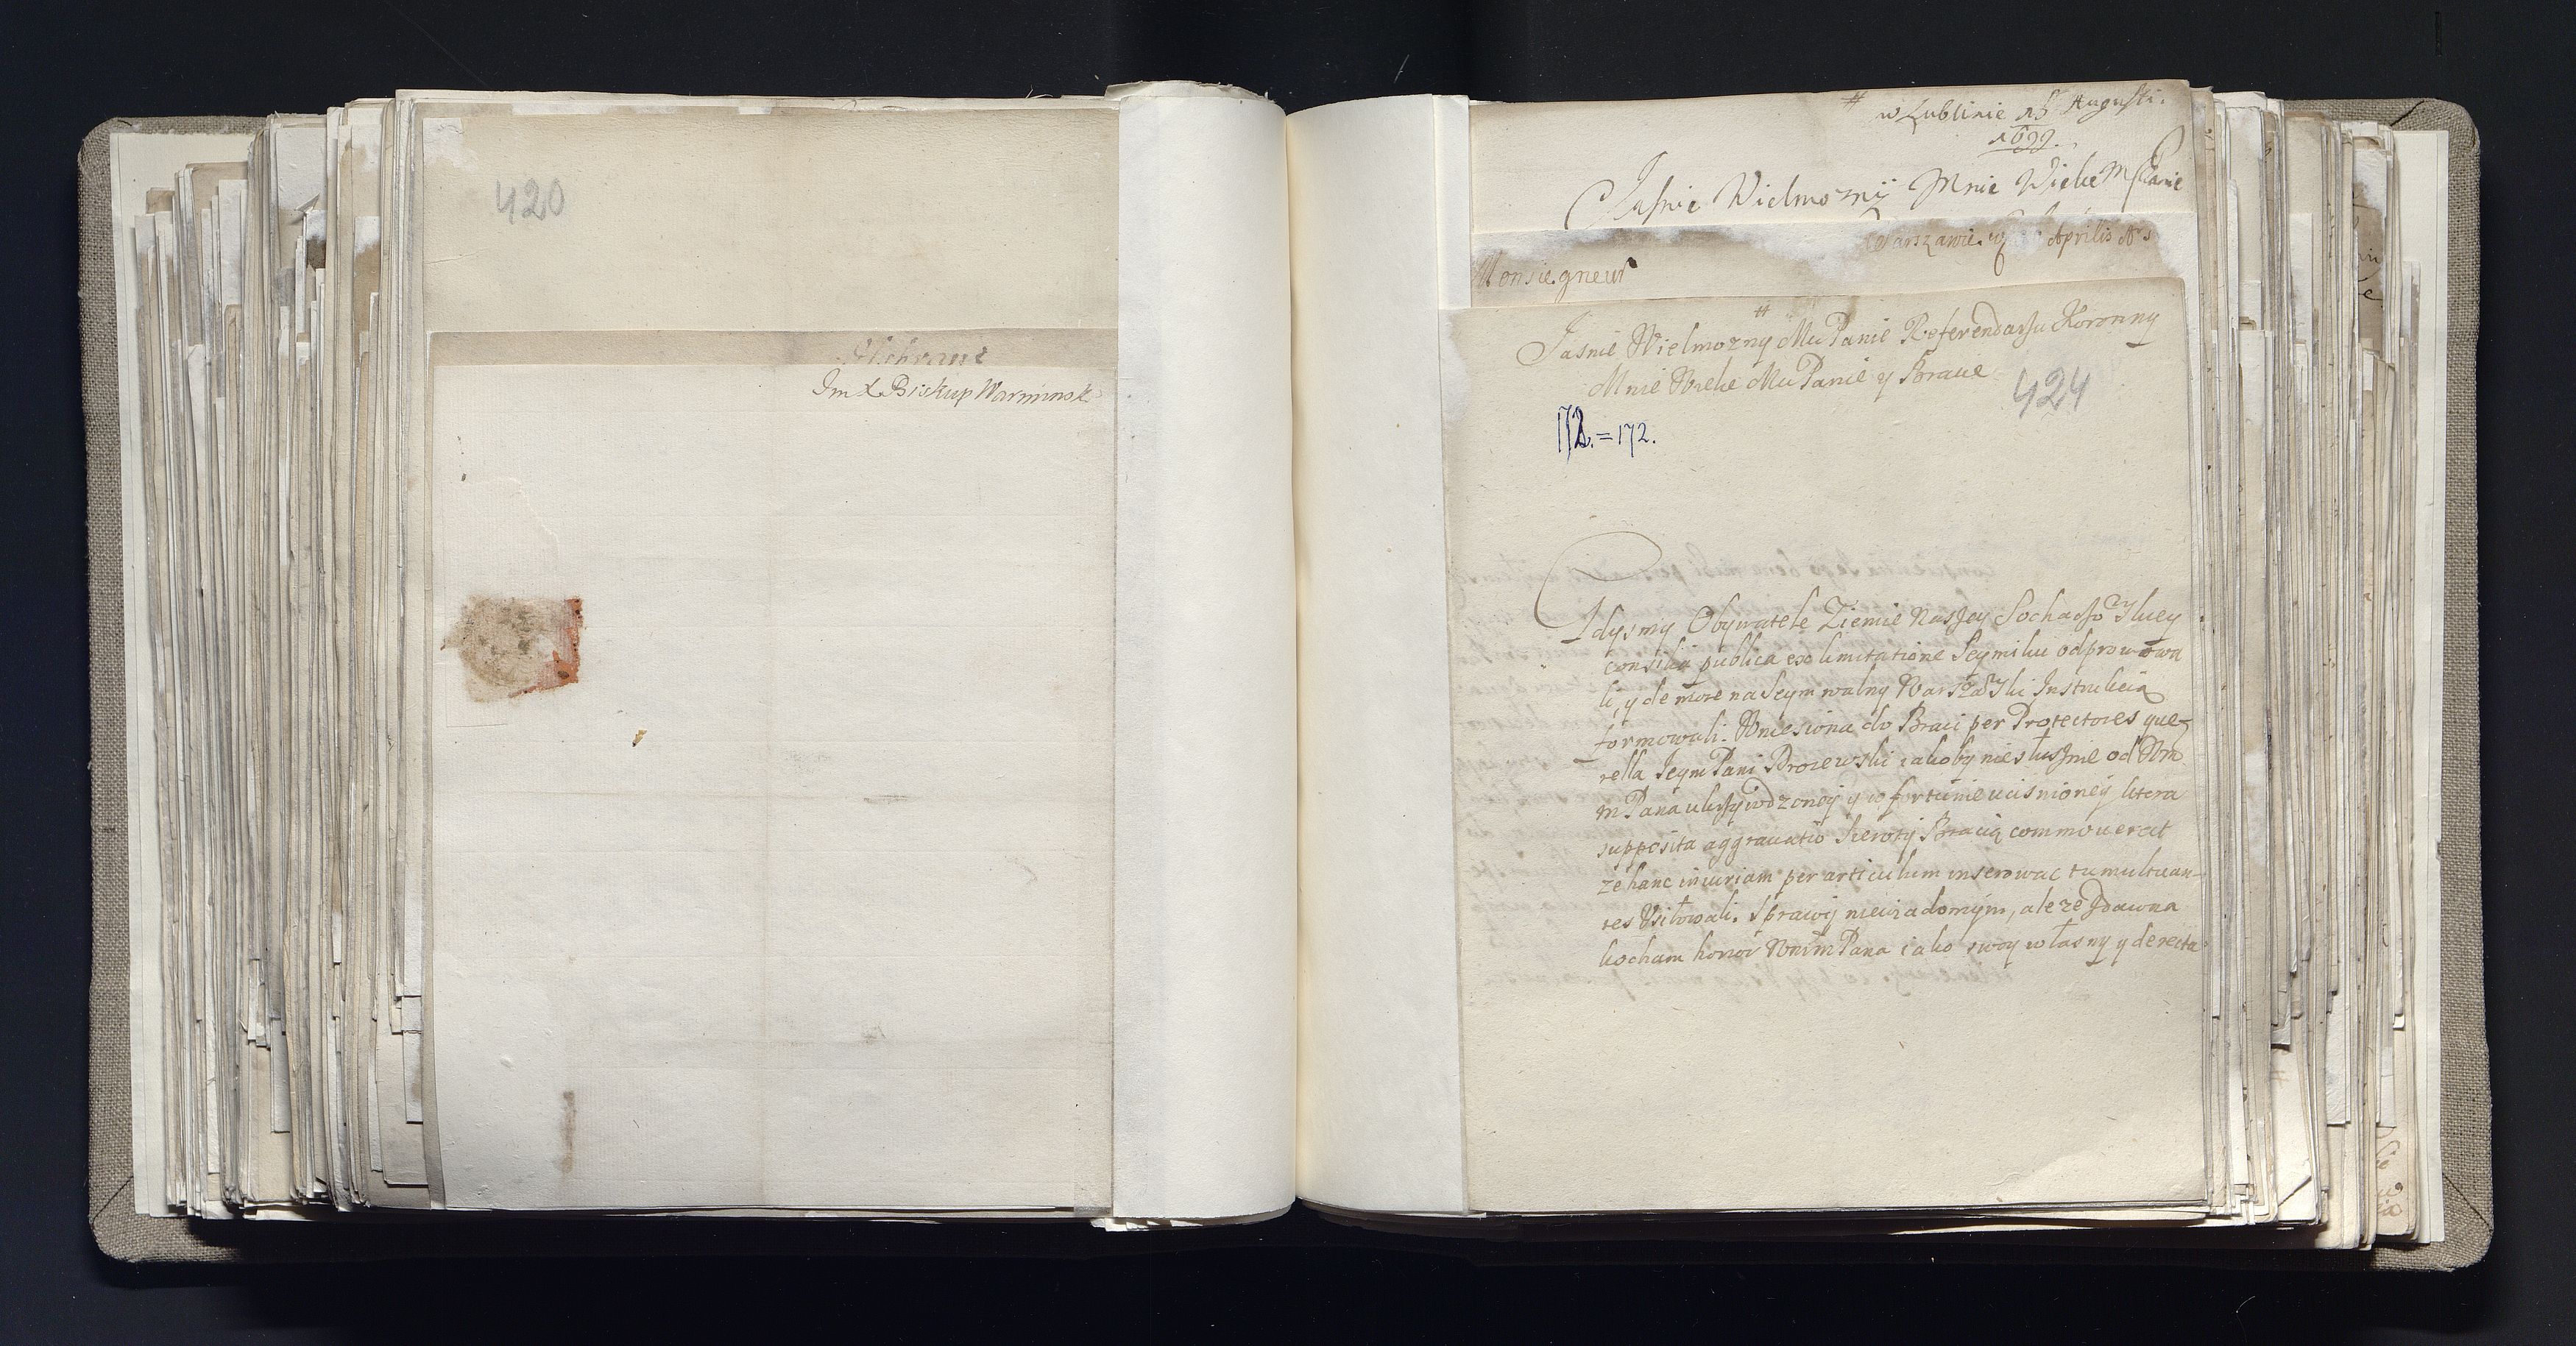 420
Im X Biskup Warminsk
w Lublinie 15 Augusti.
1699.
Jasnie Wielmozny Mnie Wielce M Panie
Warszawie Aprilis
Monsiegneur
Jasnie Wielmozny Mu Panie Referendarzu Koronny
Mnie Wielce Mu Panie y Bracie
424
172.=172.
Gdysmy Obywatele Ziemie Naszey Sochaczowskiey
consilia publica ex limitatione Seymiku odprawowa
li, y de more na Seym walny Warszawski Instrukcią
formowali. Wniesiona do Braci per Protectores que-
rella Jeym Pani iakoby niesłusznie od Wm
m Pana ukrzywdzoney y w fortunie ucisnioney litera
supposita aggrauatio Sieroty Bracią commouerat
ze hanc iniuriam per articulum inserowac tumultuan-
tes Usiłowali. Sprawy niewiadomym, ale ze zdawna
kocham honor Wm m Pana iako swoy własny y derecta